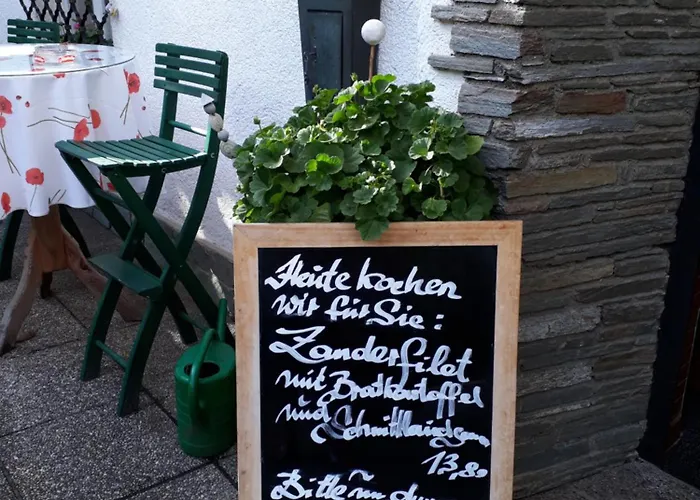 Heute kochen
wir für Sie:
Zanderfilet
mit Bratkartoffel
und
Schnittlauch
13,80
Bitte nur